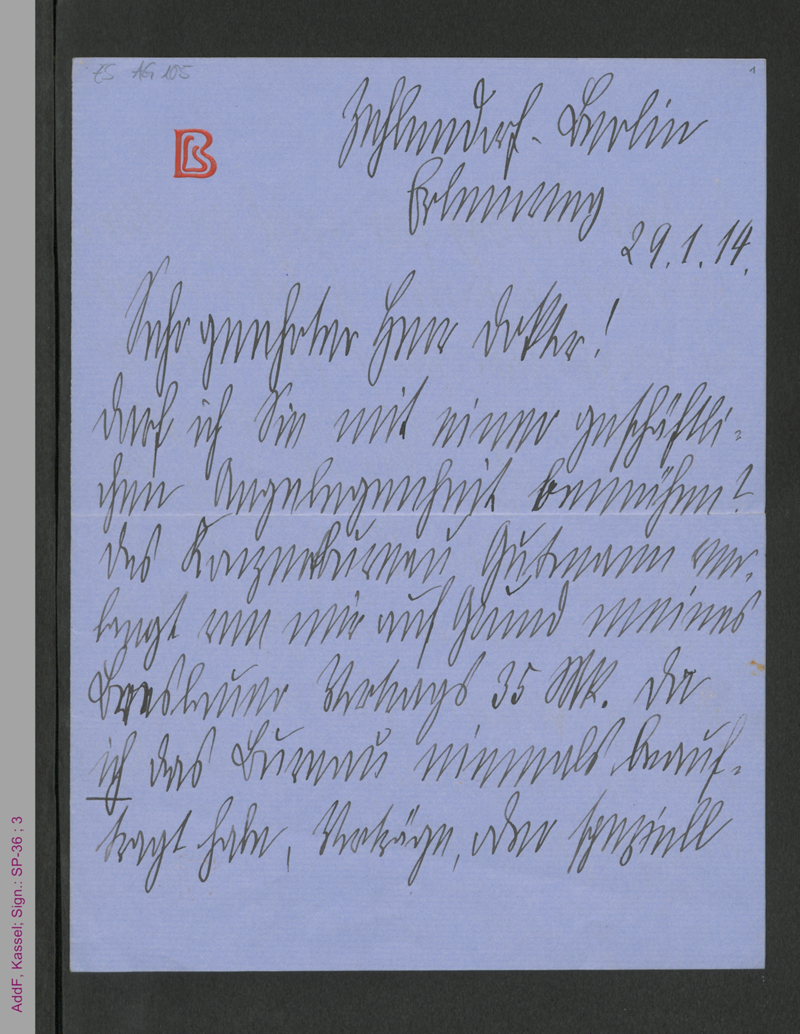 AG 105
1
B
Zehlendorf-Berlin
Erlenweg
29.1.14.
Sehr geehrter Herr Doktor!
darf ich Sie mit einer geschäftli-
chen Angelegenheit bemühen?
das Konzertbureau Gutmann ver-
langt von mir auf Grund meines
Breslauer Vortrags 35 Mk. Da
ich das Bureau niemals beauf-
tragt habe, Vorträge, oder speziell
AddF, Kassel; Sign.: SP-36 ; 3